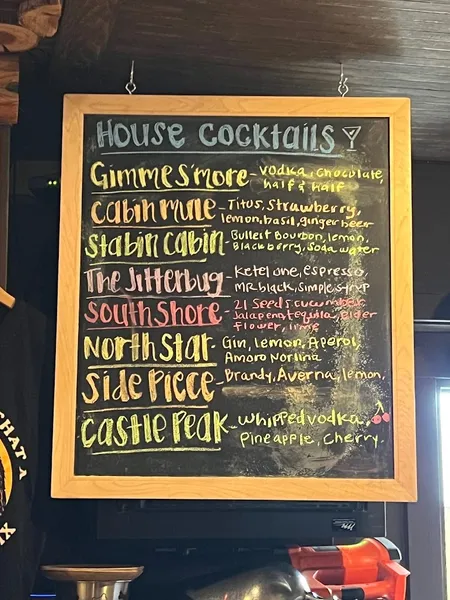 HOUSE COCKTAILS
Gimme S'more - vodka, chocolate,
half & half
Cabin Mule - Titos, Strawberry,
lemon, basil, ginger beer
Stabin Cabin - Bulleit Bourbon, lemon,
Blackberry, Soda water
The Jitterbug - Ketel one, espresso,
MR black, simple syrup
South Shore - 21 Seeds cucumber
Jalapeno tequila, elder
flower, lime
North Star - Gin, lemon, Aperol,
Amoro Nonina
Side Piece - Brandy, Averna, lemon,
Castle Peak - whipped vodka,
Pineapple, Cherry.
THAT A